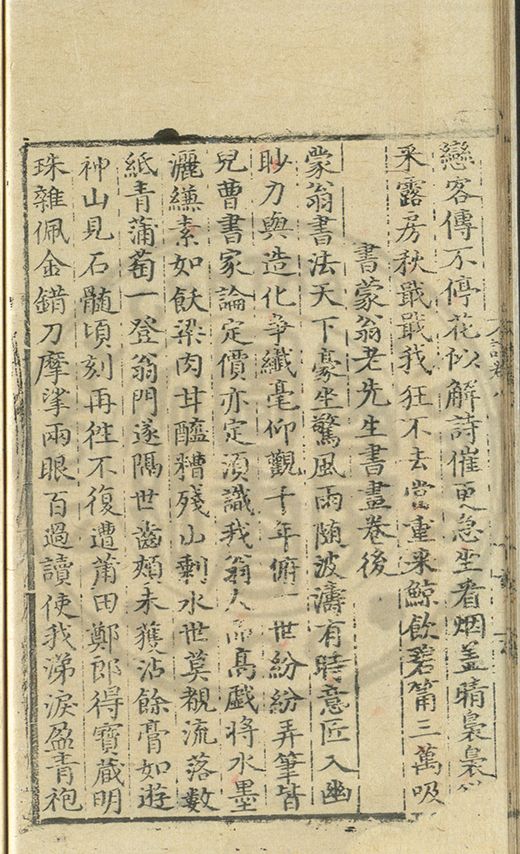 戀客傳不停花似解詩催更急坐看烟蓋晴裊裊
采露房秋戢戢我狂不去當重来鯨飲碧筩三萬吸
書蒙翁老先生書畫卷後
蒙翁書法天下豪坐驚風雨随波濤有時意匠入幽
眇刀與造化爭纖毫仰觀千年俯一世紛紛弄筆皆
兒曹書家論定價亦定須識我翁人高戲將水墨
灑縑素如飫粱肉甘醨糟殘山剩水世莫覩流落數
紙青蒲萄一登翁門遂隔世齒頰未獲沾餘膏如遊
神山見石髓頃刻再徃不復遭莆田鄭郎得寶蔵明
珠雜佩金錯刀摩挲兩眼百過讀使我涕淚盈青袍